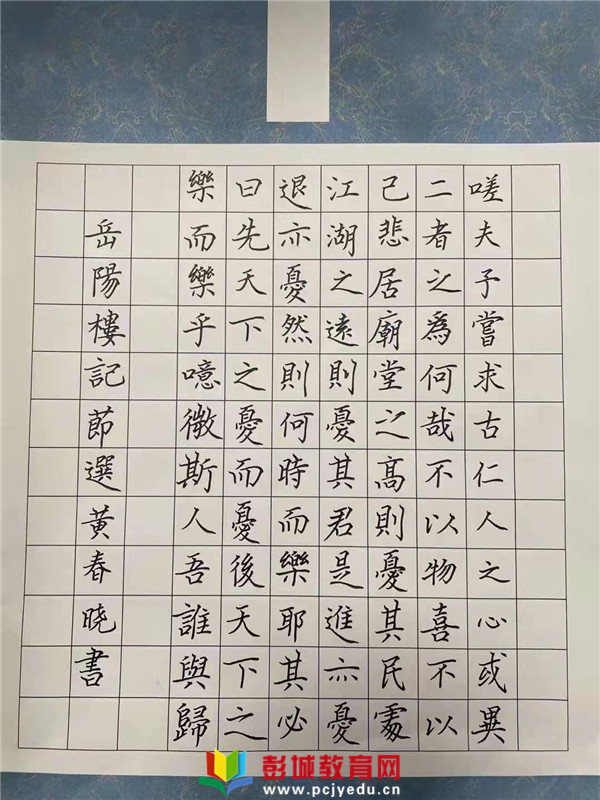 嗟夫子嘗求古仁人之心或異
二者之爲何哉不以物喜不以
己悲居廟堂之高則憂其民處
江湖之遠則憂其君是進亦憂
退亦憂然則何時而樂耶其必
曰先天下之憂而憂後天下之
樂而樂乎噫微斯人吾誰與歸
岳陽樓記節選黃春晓書
彭城教育网
www.pcjyedu.cn